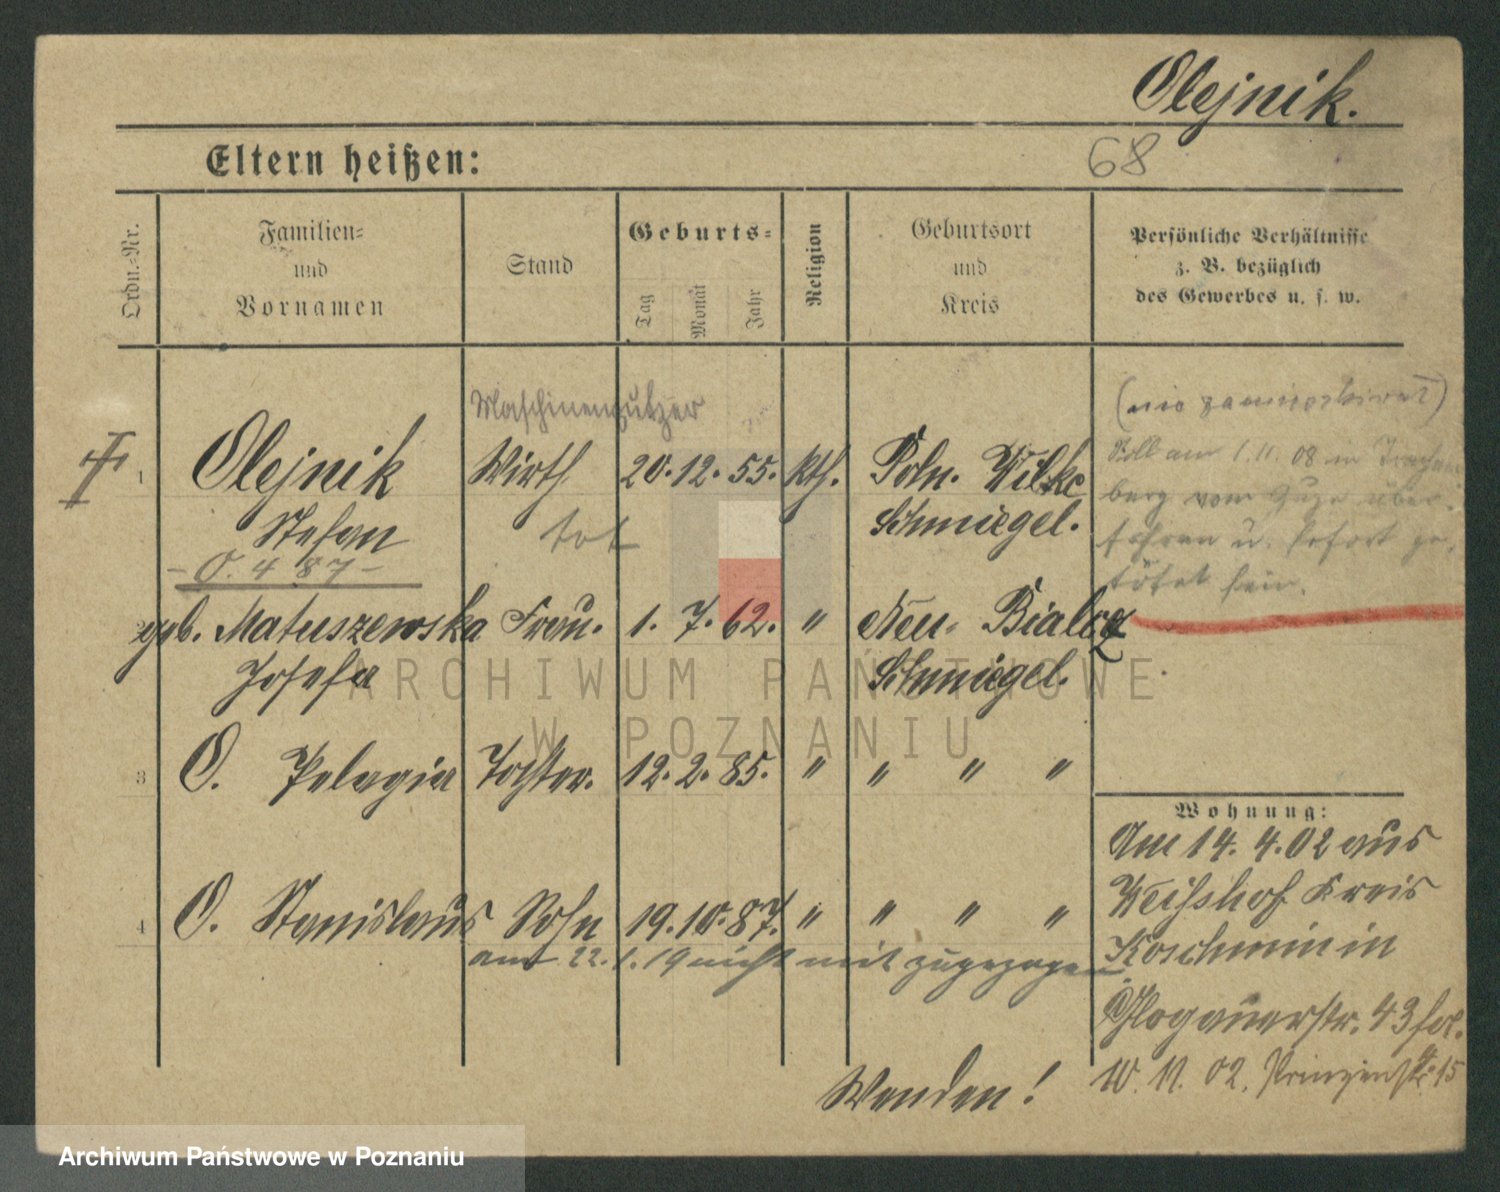 Olejnik.
68
Eltern heißen:
Ordn.-Nr.
Familien- und Vornamen
Stand
Geburts-
Tag
Monat
Jahr
Religion
Geburtsort und Kreis
Persönliche Verhältnisse
z. B. bezüglich
des Gewerbes u. s. w.
Maschinenputzer
1 Olejnik Wirth 20. 12. 55. kth. Poln. Wilke
Stefan tot Schmiegel.
- O. 487 -
Soll am 1.11.08 in
berg vom Zuge über-
fahren u. sofort ge-
tötet sein.
geb. Matuszewska Frau. 1. 7. 62. " Neu- Bialcz
Josefa Schmiegel.
3 O. Pelagia Tochter. 12. 2. 85. " " " "
4 O. Stanislaus Sohn 19. 10. 87. " " " "
am 22.1.19 nicht mit zugezogen
Wohnung:
Am 14. 4. 02 aus
Weißhof Kreis
Koschmin in
Glogauerstr. 43
10. 11. 02. Prinzenstr. 15
Wenden!
ARCHIWUM PAŃSTWOWE
W POZNANIU
Archiwum Państwowe w Poznaniu